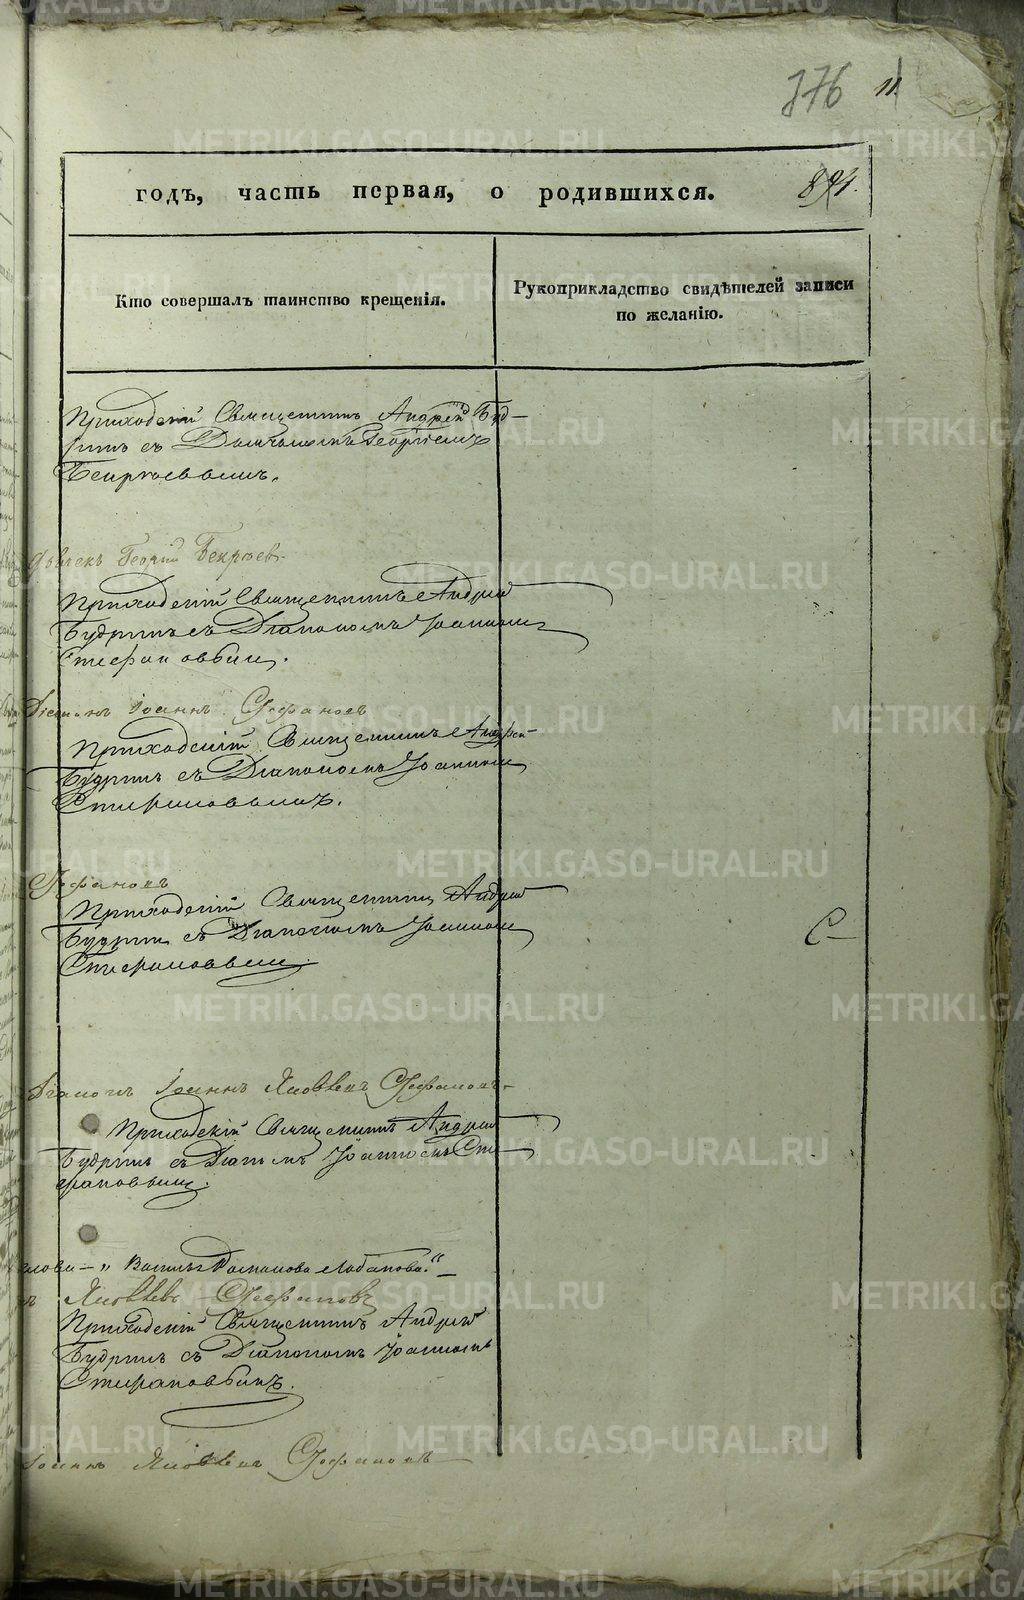 376
11
годъ, часть первая, о родившихся.
Кто совершалъ таинство крещенія.
Рукоприкладство свидѣтелей записи
по желанію.
Приходскій Священникъ Андрей Буд-
ринъ съ Дьячкомъ Георгіемъ
Бекрѣевымъ.
Дьячекъ Георгій Бекрѣев
Приходскій Священникъ Андрей
Будринъ съ Діакономъ Іоанном
Стефановым.
Діаконъ Іоаннъ Стефановъ
Приходскій Священникъ Андрей
Будринъ съ Діакономъ Іоанном
Стефановымъ.
Стефановъ
Приходскій Священник Андрей
Будрин съ Діакономъ Іоанном
Стефановым
С
Діаконъ Іоаннъ Яковлевъ Стефановъ
Приходскій Священникъ Андрей
Будринъ съ Іоанномъ Сте-
фановым.
Романова Лобанова."
Яковлевъ Стефановъ
Приходскій Священникъ Андрей
Будринъ съ Діакономъ Іоанномъ
Стефановымъ.
Іоаннъ Яковлевъ Стефановъ
METRIKI.GASO-URAL.RU